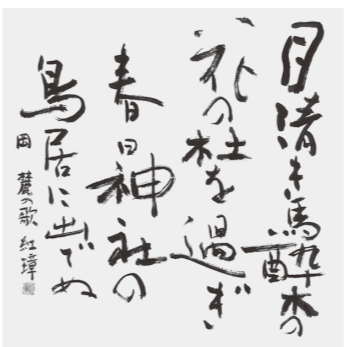 月清き馬酔木の
花の杜を過ぎ
春日神社の
鳥居に出でぬ
岡麓の歌 紅璋